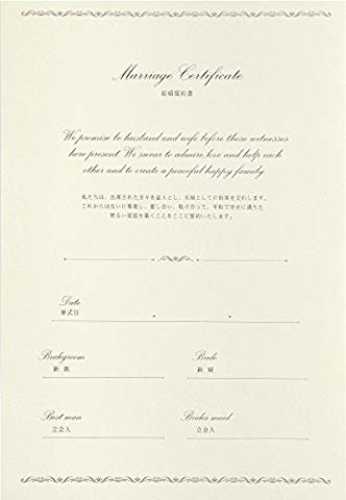 Marriage Certificate
結婚誓約書
We promise to husband and wife before these witnesses
here present We swear to admire, love and help each
other and to create a peaceful happy family
私たちは、出席された方々を証人とし、夫婦としての約束を交わします。
これからはお互いに尊敬し、愛し合い、助け合って、平和で幸せに満ちた
明るい家庭を築くことをここに誓約いたします。
Date
挙式日
Bridegroom
新郎
Bride
新婦
Best man
立会人
Brides maid
立会人